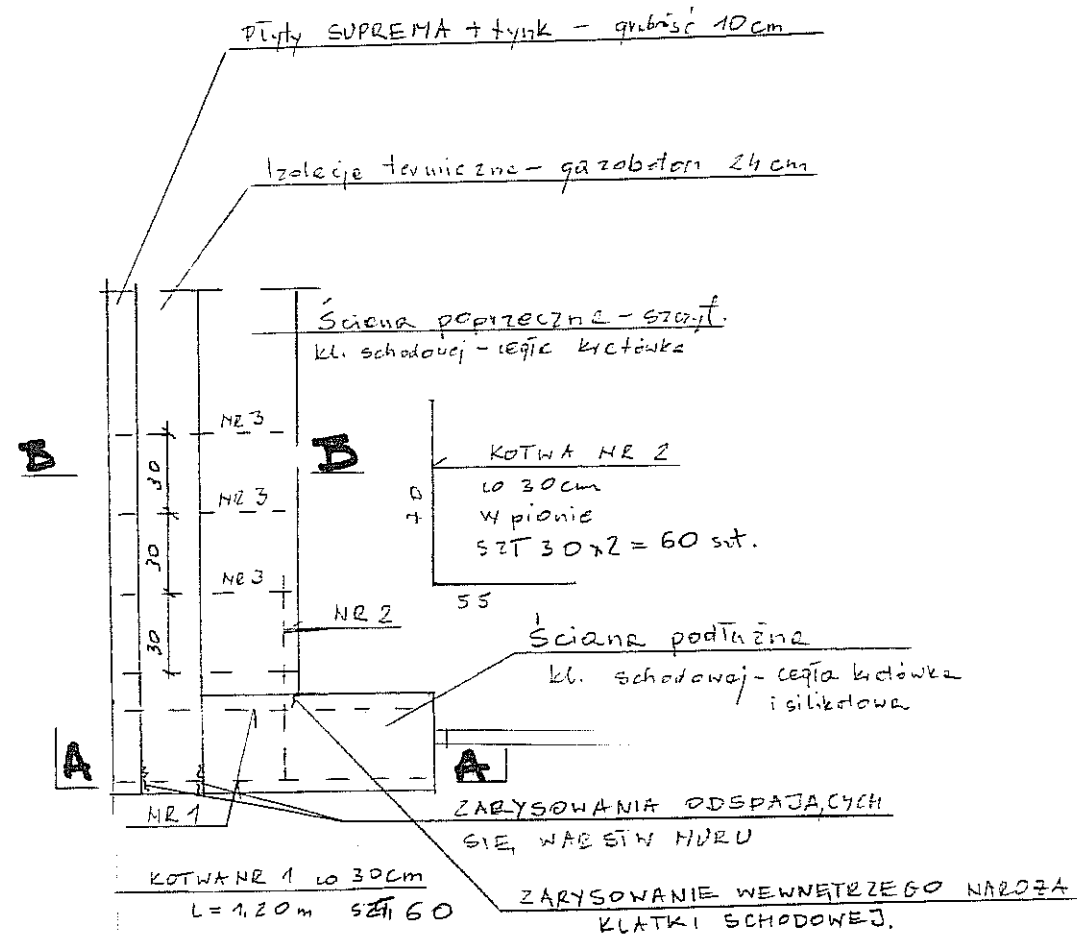 Płyty SUPREMA + tynk - grubość 10cm
Izolacje termiczne - gazobeton 24 cm
Ściana poprzeczna - szczyt.
kl. schodowej - cegła kratówka
NR 3
B
B
KOTWA NR 2
co 30cm
w pionie
SZT 30x2 = 60 szt.
70
55
30
NR 3
30
NR 3
30
NR 2
Ściana podłużna
kl. schodowej - cegła kratówka
i silikatowa
A
A
NR 1
ZARYSOWANIA ODSPAJAJĄCYCH
SIĘ WARSTW MURU
KOTWA NR 1 co 30cm
L = 1,20 m SZT. 60
ZARYSOWANIE WEWNĘTRZEGO NAROŻA
KLATKI SCHODOWEJ.